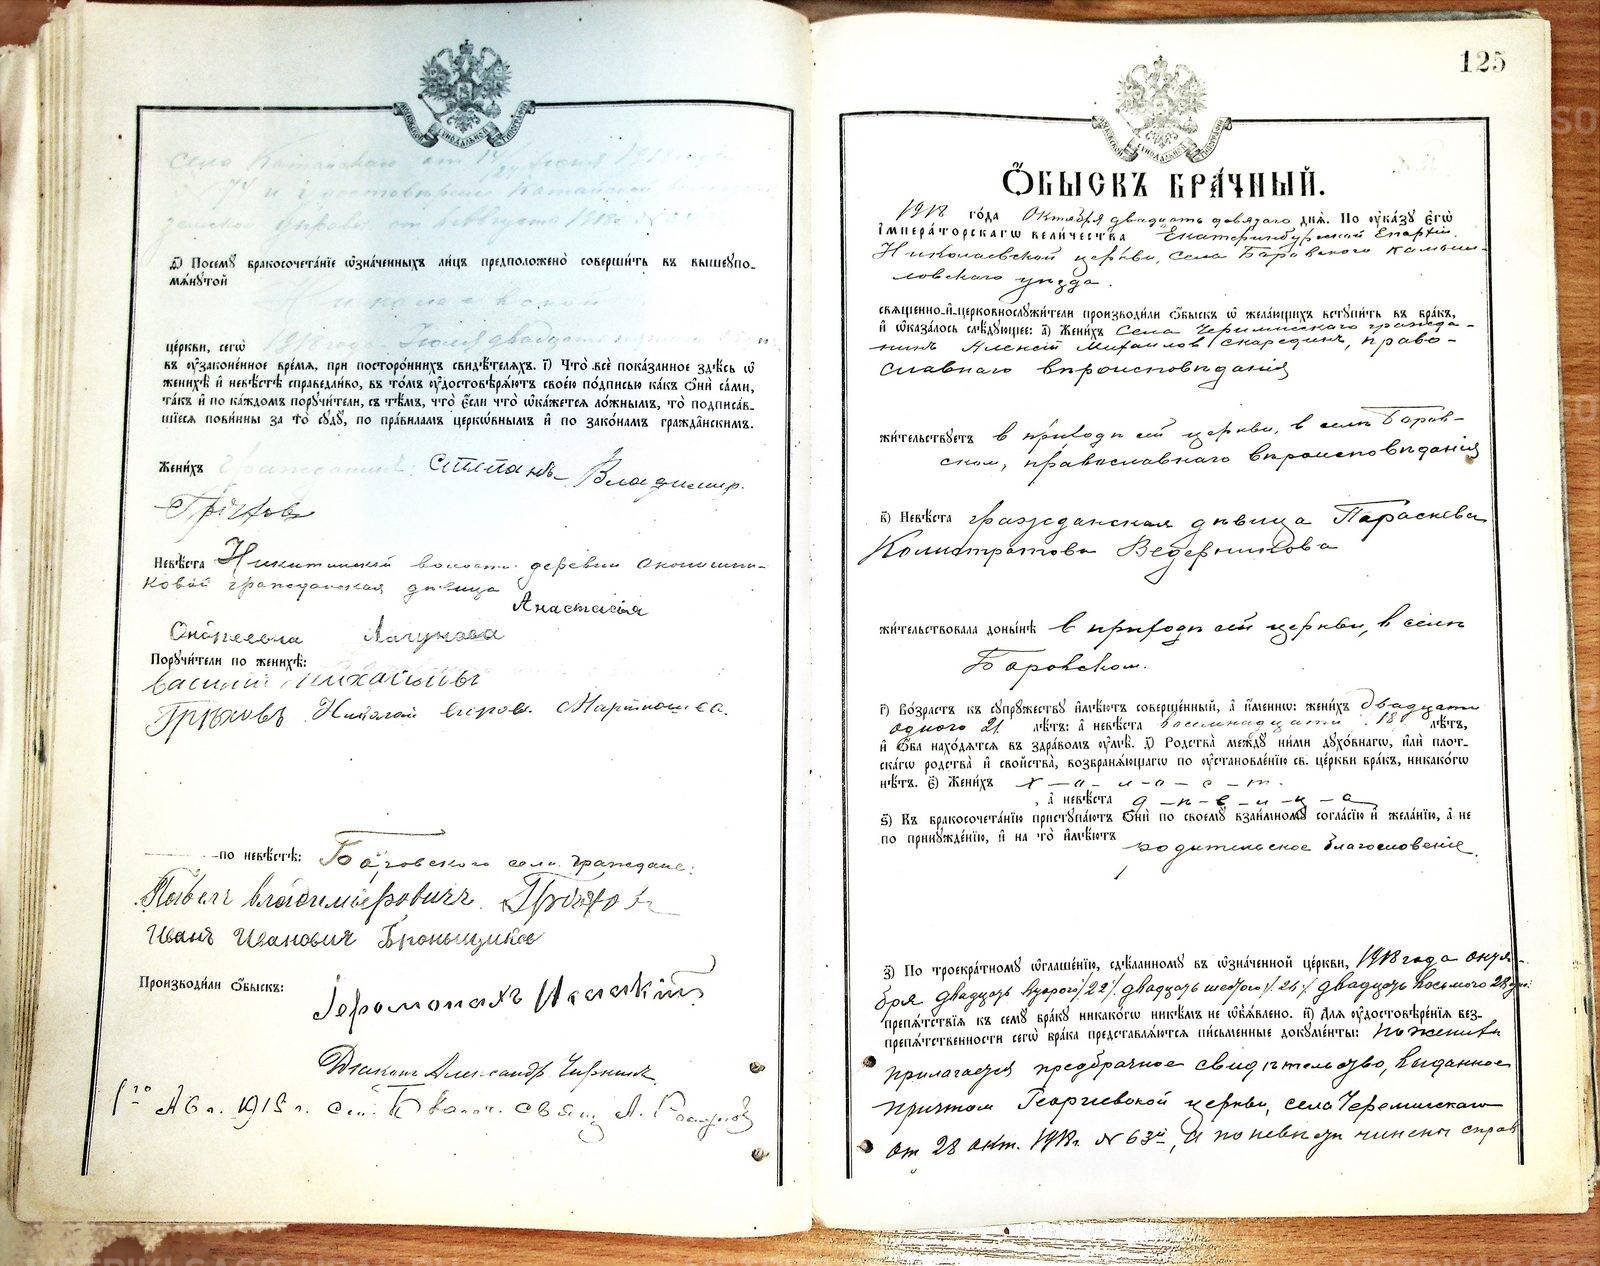 МОСКОВСКОЙ СѴНОДАЛЬНОЙ ТИПОГРАФІИ
села Катайскаго от 14/27 1918 года
74 и удостоверение Катайской волостной
земской управы от августа 1918 г. №
д҃) Посемꙋ бракосочетанїе ѡзначенныхъ лицъ предположено совершить въ вышеупо-
мѧнутой
Николаевской
церкви, сегѡ 1918 года Iюля двадцать
въ оузаконенное времѧ, при постороннихъ свидѣтелѧхъ. і҃) Что все показанное здѣсь ѡ
женихѣ и невѣстѣ справедливо, въ томъ оудостовѣрѧютъ своею подписью какъ ѻни сами,
такъ и по каждомъ поручители, съ тѣмъ, что если что ѡкажетсѧ ложнымъ, то подписав-
шїесѧ повинны за то суду, по правиламъ церкѡвнымъ и по законамъ гражданскимъ.
Женихъ гражданин: Степанъ Владимир.
Грѣхов
Невѣста Никитинской волости деревни
ковой гражданская дѣвица
Анастасія
Лагунова
Поручители по женихѣ:
Василий Михайлович
Грѣховъ Николай Егоров. Мартюшев.
—по невѣстѣ: Боровского села граждане:
Павелъ Владимѣровичъ Грѣховъ
Иванъ Ивановичъ Броньщиков
Производили ѻбыскъ: Iеромонахъ Исаакій
Диаконъ Александръ Чирков
А б л. 1918 г. свящ. А.
125
МОСКОВСКОЙ СѴНОДАЛЬНОЙ ТИПОГРАФІИ
Ѻбыскъ брачный.
1918 года Октября двадцать девятого днѧ. По оуказу єгѡ
їмператорскагѡ величества Екатеринбургской Епархіи
Николаевской церкви, села Боровского Камыш-
ловского уѣзда.
свѧщенно-и-церковнослужители производили ѻбыскъ ѡ желающихъ вступить въ бракъ,
и ѡказалось слѣдующее: а҃) Женихъ села Черемисского гражда-
нинъ Алексѣй Михаилов Скарединъ, право-
славнаго вѣроисповѣданія
жительствуетъ в приходѣ сей церкви, в селѣ Боров-
ском, православнаго вѣроисповѣданія
в҃) Невѣста гражданская дѣвица Параскева
Калистратова Ведерникова
жительствовала донынѣ в приходѣ сей церкви, в селѣ
Боровском.
г҃) Возрастъ къ супружеству имѣютъ совершенный, а именнѡ: женихъ двадцати
одного 21 лѣтъ: а невѣста восемнадцати 18 лѣтъ,
и ѻба находѧтсѧ въ здравомъ оумѣ. д҃) Родства между ними духовнагѡ, или плот-
скагѡ родства и свойства, возбранѧющагѡ по оустановленїю св. церкви бракъ, никакогѡ
нѣтъ. е҃) Женихъ х-о-л-о-с-т-
, а невѣста д-ѣ-в-и-ц-а
ѕ҃) Къ бракосочетанїю приступаютъ ѻни по своему взаимному согласїю и желанїю, а не
по принужденїю, и на то имѣютъ родительское благословеніе.
з҃) По троекратному ѡглашенїю, сдѣланному въ ѡзначенной церкви, 1918 года октя-
бря двадцать второго /22/ двадцать шестого /26/ двадцать восьмого 28 дня
препѧтствїѧ къ сему браку никакогѡ никѣмъ не ѡб̾ѧвлено. и҃) Длѧ оудостовѣренїѧ без-
препѧтственности сегѡ брака представлѧютсѧ письменные документы: по женихѣ
прилагается предбрачное свидѣтельство, выданное
причтом Георгіевской церкви, села Черемисскаго
от 28 окт. 1918 г. № 63й, а по невѣстѣ чинены справ